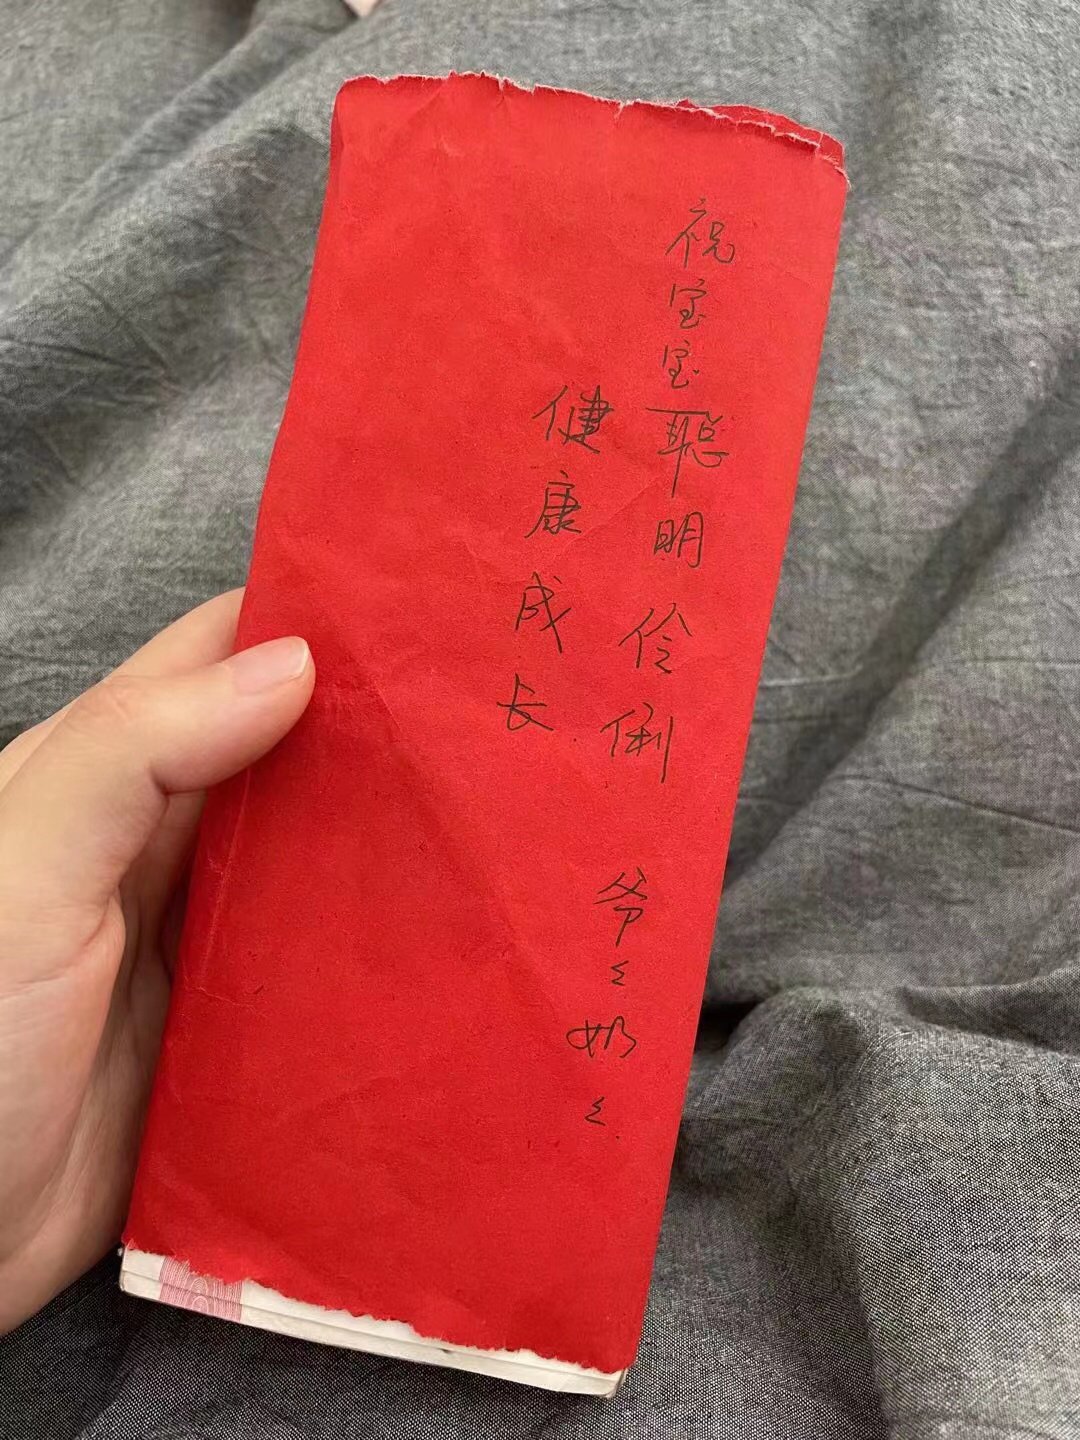 祝宝宝聪明伶俐
健康成长
爷々奶々